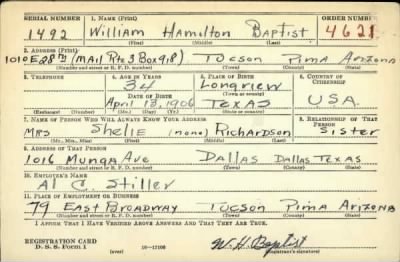 SERIAL NUMBER 1. NAME (Print) ORDER NUMBER
1492 William Hamilton Baptist 4621
(First) (Middle) (Last)
2. ADDRESS (Print)
1010 E 28th (Mail Rte 3 Box 918) Tucson Pima Arizona
(Number and street or R. F. D. number) (Town) (County) (State)
3. TELEPHONE 4. AGE IN YEARS 5. PLACE OF BIRTH 6. COUNTRY OF CITIZENSHIP
34 Longview
DATE OF BIRTH (Town or county)
April 13, 1906 Texas U.S.A.
(Exchange) (Number) (Mo.) (Day) (Yr.) (State or country)
7. NAME OF PERSON WHO WILL ALWAYS KNOW YOUR ADDRESS 8. RELATIONSHIP OF THAT PERSON
Mrs Shelie (none) Richardson Sister
(Mr., Mrs., Miss) (First) (Middle) (Last)
9. ADDRESS OF THAT PERSON
1016 Munga Ave Dallas Dallas Texas
(Number and street or R. F. D. number) (Town) (County) (State)
10. EMPLOYER'S NAME
Al C. Stiller
11. PLACE OF EMPLOYMENT OR BUSINESS
79 East Broadway Tucson Pima Arizona
(Number and street or R. F. D. number) (Town) (County) (State)
I AFFIRM THAT I HAVE VERIFIED ABOVE ANSWERS AND THAT THEY ARE TRUE.
REGISTRATION CARD
D. S. S. Form 1 (over) 16—17106 W. H. Baptist
(Registrant's signature)